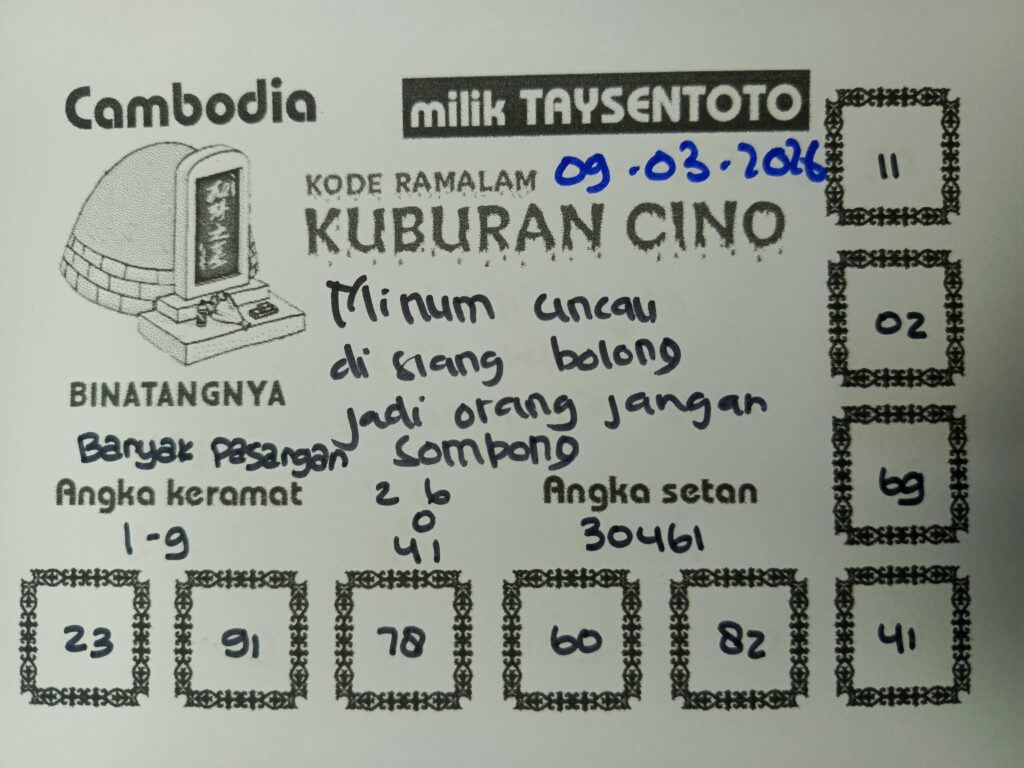 Cambodia
milik TAYSENTOTO
KODE RAMALAM
09.03.2026
KUBURAN CINO
Minum uncau
di siang bolong
jadi orang jangan
sombong
BINATANGNYA
Banyak pasangan
Angka keramat
1-9
2 6
0
41
Angka setan
30461
11
02
69
23
91
78
60
82
41